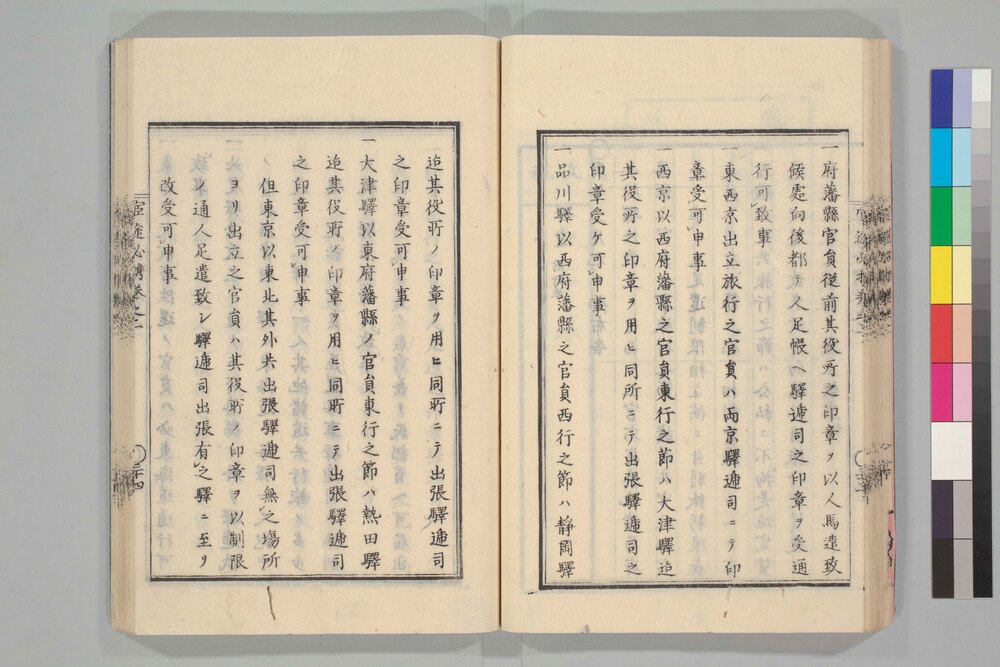 一府藩縣官員従前其役所之印章ヲ以人馬遣致
候處向後都テ人足帳ヘ驛逓司之印章ヲ受通
行可致事
一東西京出立旅行之官員ハ両京驛逓司ニテ印
章受可申事
一西京以西府藩縣之官員東行之節ハ大津驛迠
其役所之印章ヲ用ヒ同所ニテ出張驛逓司之
印章受ケ可申事
一品川驛以西府藩縣之官員西行之節ハ静岡驛
迠其役所ノ印章ヲ用ヒ同所ニテ出張驛逓司
之印章受可申事
一大津驛以東府藩縣之官員東行之節ハ熱田驛
迠其役所ノ印章ヲ用ヒ同所ニテ出張驛逓司
之印章受可申事
但東京以東北其外共出張驛逓司無之場所
ヨリ出立之官員ハ其役所ノ印章ヲ以制限
通人足遣致シ驛逓司出張有之驛ニ至リ
改受可申事
官途必携巻之二
〇三十四